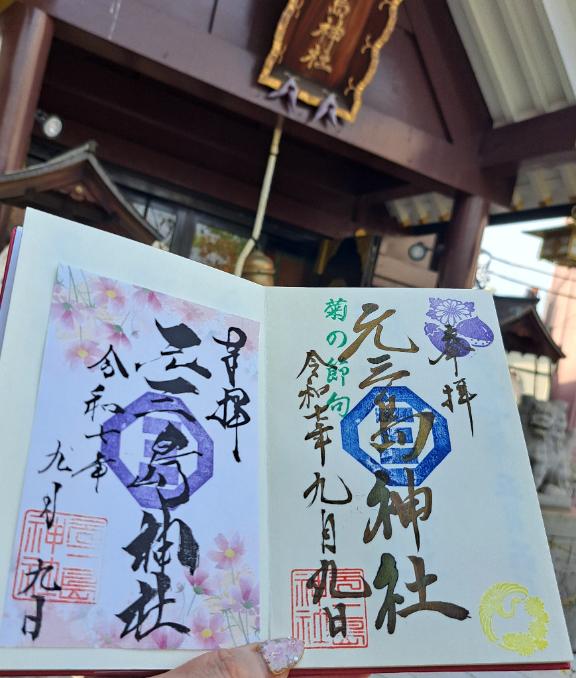 島神社
奉拝
元三島神社
菊の節句
令和七年九月九日
奉拝
元三島神社
令和七年
九月九日